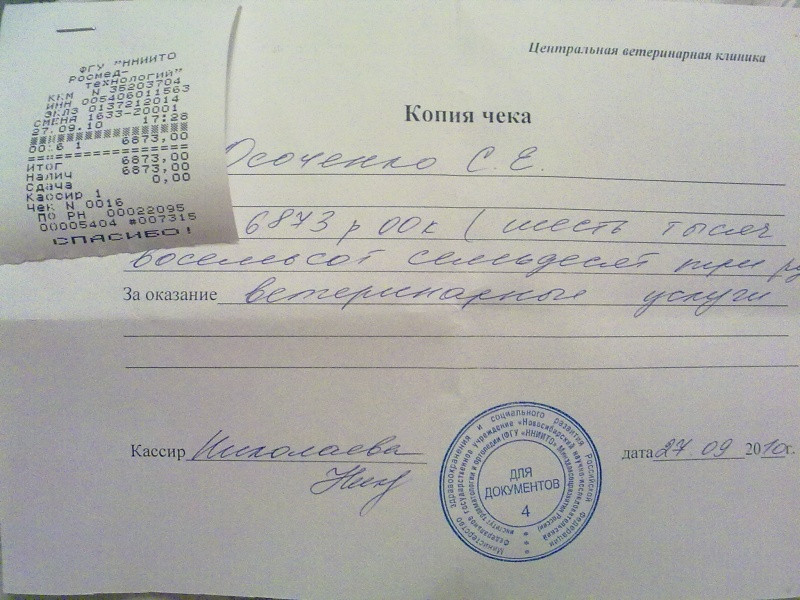 ФГУ "ННИИТО
Росмед-
технологий"
ККМ N 35203704
ИНН 005406011563
ЭКЛЗ 0137212014
СМЕНА 1633-20001
27.09.10 17:28
00:6 1 6873,00
ИТОГ 6873,00
Налич 6873,00
Сдача 0,00
Кассир 1
Чек N 0016
ПО РН 00022095
00005404 #007315
СПАСИБО!
Центральная ветеринарная клиника
Копия чека
Осоченко С. Е.
6873 р 00к ( шесть тысяч
восемьсот семьдесят три ру
За оказание ветеринарные услуги
Кассир Николаева
дата 27 09 2010г.
Министерство здравоохранения и социального развития Российской Федерации
Федеральное государственное учреждение «Новосибирский научно-исследовательский
институт травматологии и ортопедии (ФГУ «ННИИТО» Минздравсоцразвития России)
ДЛЯ
ДОКУМЕНТОВ
4